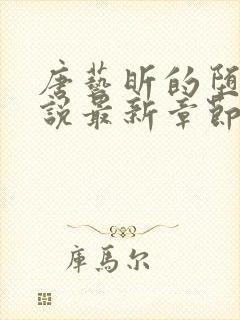 唐藝昕的堕
說最新章節
庫馬尔